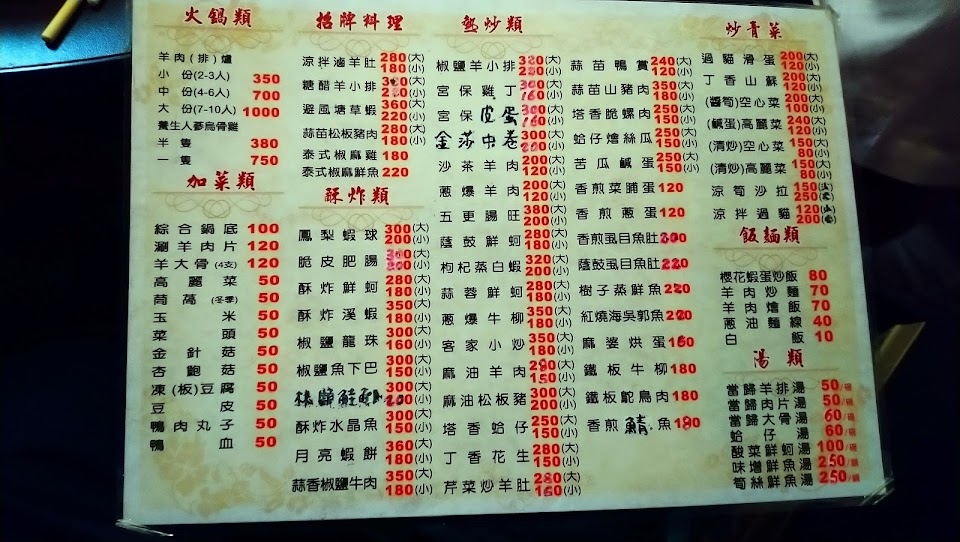 火鍋類
羊肉(排)爐
小 份(2-3人) 350
中 份(4-6人) 700
大 份(7-10人) 1000
養生人蔘烏骨雞
半 隻 380
一 隻 750
加菜類
綜合鍋底 100
涮羊肉片 120
羊大骨(4支) 120
高麗菜 50
茼蒿(冬季) 50
玉米 50
菜頭 50
金針菇 50
杏鮑菇 50
凍(板)豆腐 50
豆皮 50
鴨肉丸子 50
鴨血 50
招牌料理
涼拌滷羊肚 280(大) 180(小)
糖醋羊小排 (大) (小)
避風塘草蝦 360(大) 220(小)
蒜苗松板豬肉 280(大) 180(小)
泰式椒麻雞 180
泰式椒麻鮮魚 220
酥炸類
鳳梨蝦球 300(大) 200(小)
脆皮肥腸 (大) (小)
酥炸鮮蚵 280(大) 180(小)
酥炸溪蝦 350(大) 180(小)
椒鹽龍珠 300(大) 160(小)
椒鹽魚下巴 300(大) 150(小)
椒鹽鮭魚
酥炸水晶魚 300(大) 150(小)
月亮蝦餅 360(大) 180(小)
蒜香椒鹽牛肉 350(大) 180(小)
熱炒類
椒鹽羊小排 (大) (小)
宮保雞丁 (大) (小)
宮保皮蛋 (大) (小)
金莎中卷 300(大) 200(小)
沙茶羊肉 200(大) 120(小)
蔥爆羊肉 200(大) 120(小)
五更腸旺 380(大) 200(小)
蔭鼓鮮蚵 280(大) 180(小)
枸杞蒸白蝦 320(大) 200(小)
蒜蓉鮮蚵 280(大) 180(小)
蔥爆牛柳 350(大) 180(小)
客家小炒 350(大) 180(小)
麻油羊肉 (大) (小)
麻油松板豬 300(大) 200(小)
塔香蛤仔 250(大) 150(小)
丁香花生 280(大) 150(小)
芹菜炒羊肚 280(大) 160(小)
蒜苗鴨賞 240(大) 120(小)
蒜苗山豬肉 350(大) 180(小)
塔香脆螺肉 250(大) 150(小)
蛤仔燴絲瓜 250(大) 150(小)
苦瓜鹹蛋 250(大) 150(小)
香煎菜脯蛋 120
香煎蔥蛋 120
香煎虱目魚肚
蔭鼓虱目魚肚 220
樹子蒸鮮魚 220
紅燒海吳郭魚
麻婆烘蛋
鐵板牛柳 180
鐵板鴕鳥肉 180
香煎鯖魚
炒青菜
過貓滑蛋 200(大) 120(小)
丁香山蘇 200(大) 120(小)
(醬筍)空心菜 200(大) 100(小)
(鹹蛋)高麗菜 240(大) 120(小)
(清炒)空心菜 150(大) 80(小)
(清炒)高麗菜 150(大) 80(小)
涼筍沙拉 150 250
涼拌過貓 120 200
飯麵類
櫻花蝦蛋炒飯 80
羊肉炒麵 70
羊肉燴飯 70
蔥油麵線 40
白飯 10
湯類
當歸羊排湯 50/碗
當歸肉片湯 50/碗
當歸大骨湯 60/碗
蛤仔湯 60/碗
酸菜鮮蚵湯 100/碗
味增鮮魚湯 250/鍋
筍絲鮮魚湯 250/鍋